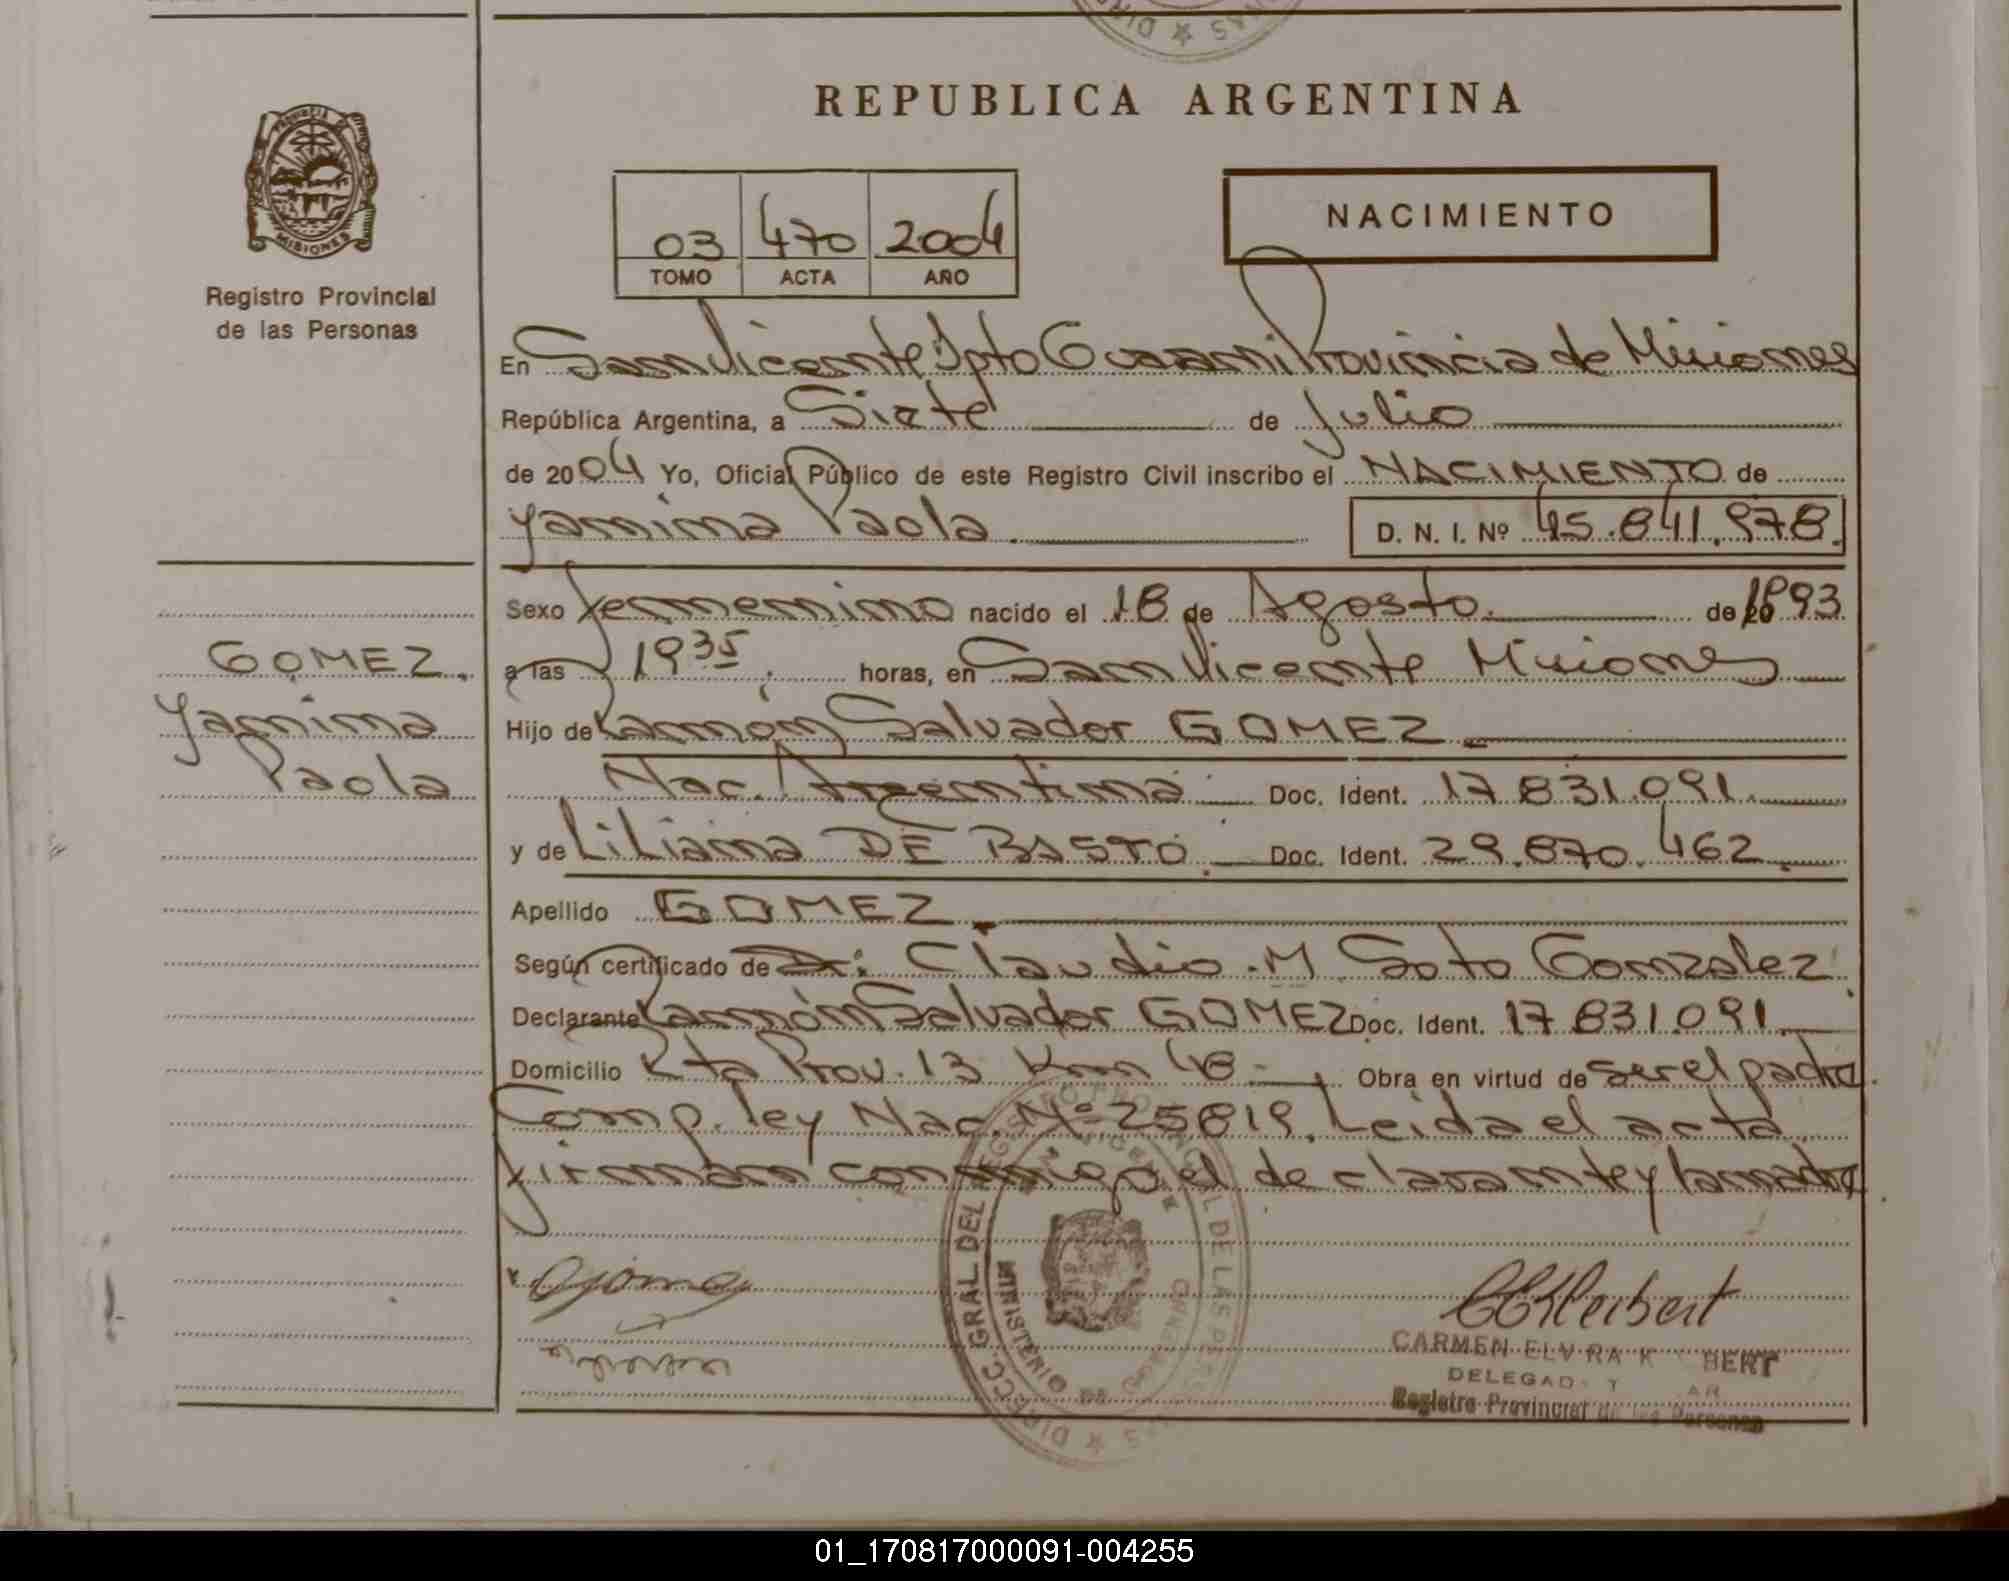 REPUBLICA ARGENTINA
PROVINCIA DE
MISIONES
Registro Provincial
de las Personas
03 470 2004
TOMO ACTA AÑO
NACIMIENTO
En San Vicente Dpto Guaraní Provincia de Misiones
República Argentina, a Siete de Julio
de 2004 Yo, Oficial Público de este Registro Civil inscribo el NACIMIENTO de
Yamima Paola D. N. I. Nº 45.841.978.
Sexo femenino nacido el 18 de Agosto de 1993
GOMEZ.
Yamima
Paola
a las 19 35 horas, en San Vicente Misiones
Hijo de Ramón Salvador GOMEZ
Nac. Argentina Doc. Ident. 17.831.091.
y de Liliana DE BASTO. Doc. Ident. 29.870.462.
Apellido GOMEZ.
Según certificado de Dr: Claudio M Soto Gonzalez
Declarante Ramón Salvador GOMEZ Doc. Ident. 17.831.091
Domicilio Rta Prov. 13 Km 48 Obra en virtud de ser el padre
Comp. ley Nac. Nº 25819. Leida el acta
firman conmigo el declarante y la madre
DIRECC. GRAL DEL REGISTRO PROVINCIAL DE LAS PERSONAS
MINISTERIO DE GOBIERNO
CARMEN ELVIRA K BERT
DELEGAD
Registro Provincial de las Personas
01_170817000091-004255